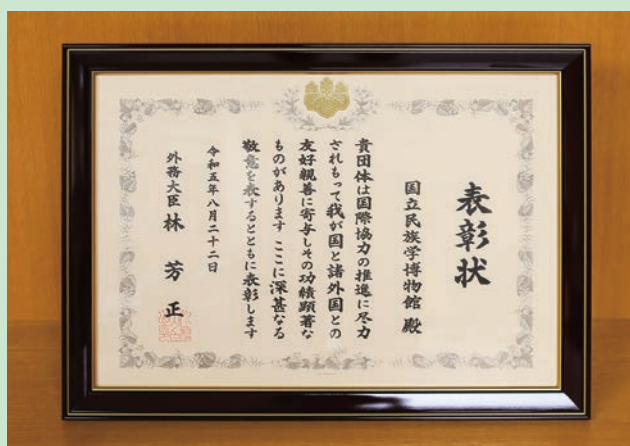 表彰状
国立民族学博物館 殿
貴団体は国際協力の推進に尽力
されもって我が国と諸外国との
友好親善に寄与しその功績顕著な
ものがあります ここに深甚なる
敬意を表するとともに表彰します
令和五年八月二十二日
外務大臣 林 芳正